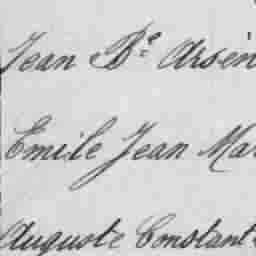 Jean Bte Arsèn
Emile Jean Mar
Auguste Constant